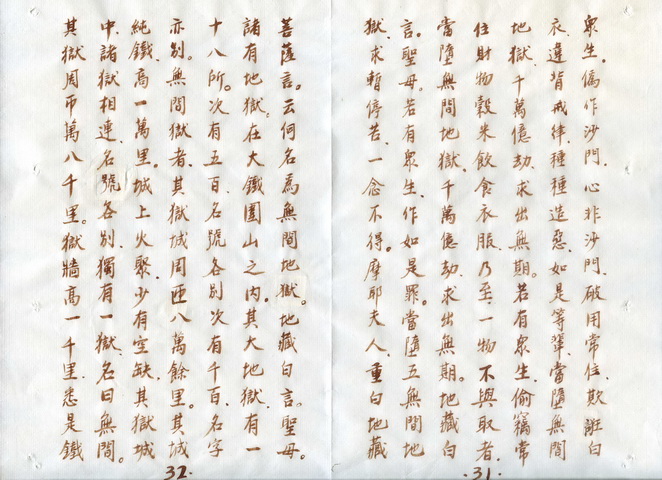 眾生。偽作沙門、心非沙門、破用常住、欺誑白
衣、違背戒律、種種造惡、如是等輩、當墮無間
地獄、千萬億劫、求出無期。若有眾生、偷竊常
住財物穀米、飲食衣服、乃至一物不與取者、
當墮無間地獄、千萬億劫、求出無期。地藏白
言。聖母。若有眾生、作如是罪。當墮五無間地
獄、求暫停苦、一念不得。摩耶夫人、重白地藏
31
菩薩言。云何名為無間地獄。地藏白言。聖母。
諸有地獄、在大鐵圍山之內。其大地獄、有一
十八所。次有五百、名號各別。次有千百、名字
亦別。無間獄者、其獄城周匝八萬餘里。其城
純鐵、高一萬里。城上火聚、少有空缺、其獄城
中、諸獄相連、名號各別、獨有一獄、名曰無間。
其獄周帀萬八千里。獄牆高一千里、悉是鐵
32